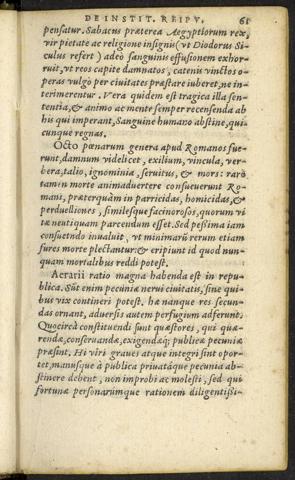 DE INSTIT. REIPV. 61
pensatur. Sabacus præterea Aegyptiorum rex,
vir pietate ac religione insignis (vt Diodorus Si-
culus refert) adeò sanguinis effusionem exhor-
ruit, vt reos capite damnatos, catenis vinctos o-
peras vulgò per ciuitates præstare iuberet, ne in-
terimerentur. Vera quidem est tragica illa sen-
tentia, & animo ac mente semper recensenda ab
his qui imperant, Sanguine humano abstine, qui-
cunque regnas.
Octo pœnarum genera apud Romanos fue-
runt, damnum videlicet, exilium, vincula, ver-
bera, talio, ignominia, seruitus, & mors: rarò
tamen morte animaduertere consueuerunt Ro-
mani, præterquàm in parricidas, homicidas, &
perduelliones, similesque facinorosos, quorum vi-
tæ neutiquam parcendum esset. Sed peßima iam
consuetudo inualuit, vt minimarũ rerum etiam
fures morte plectantur: & eripiunt id quod nun-
quam mortalibus reddi potest.
Aerarii ratio magna habenda est in repu-
blica. Sũt enim pecuniæ nerui ciuitatis, sine qui-
bus vix contineri potest, hæ nanque res secun-
das ornant, aduersis autem perfugium adferunt.
Quocircà constituendi sunt quæstores, qui quæ-
rendæ, conseruandæ, exigendæq; publicæ pecuniæ
præsint. Hi viri graues atque integri sint opor-
tet, manusque à publica priuatáque pecunia ab-
stinere debent, non improbi ac molesti, sed qui
fortunæ personarúmque rationem diligentißi-